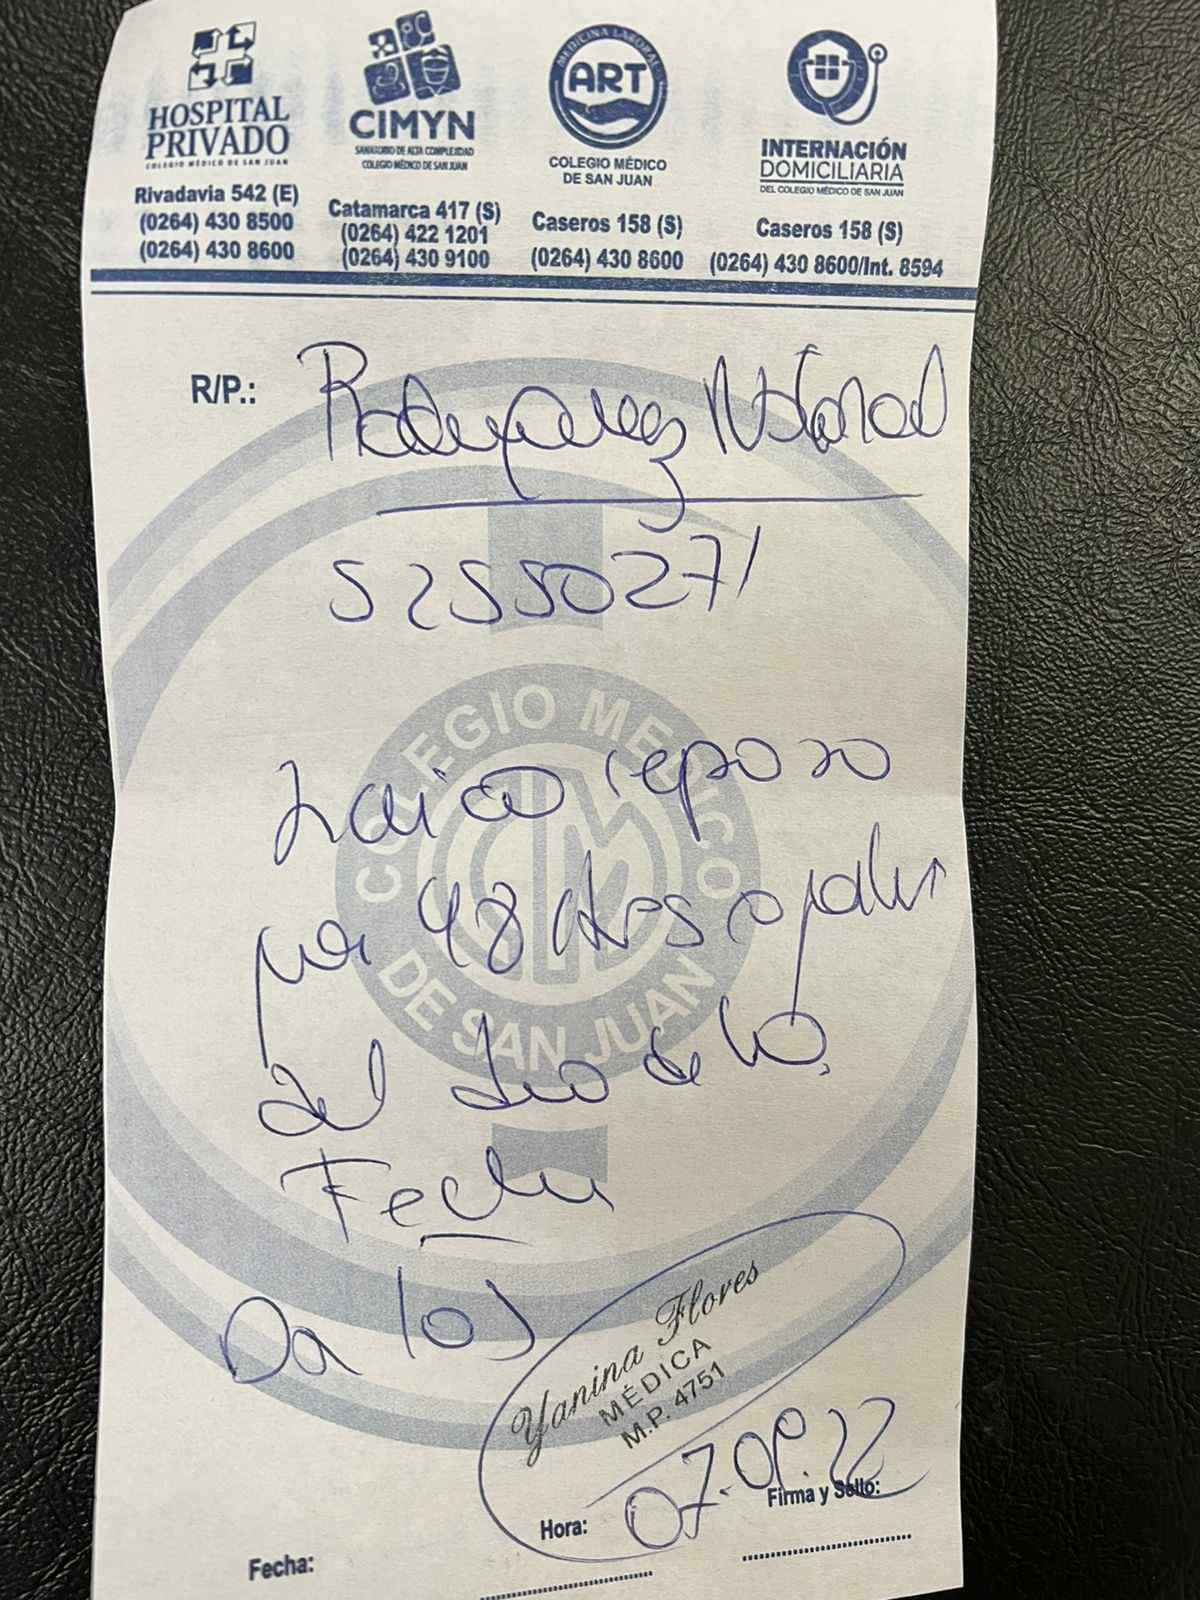 HOSPITAL
PRIVADO
COLEGIO MÉDICO DE SAN JUAN
Rivadavia 542 (E)
(0264) 430 8500
(0264) 430 8600
CIMYN
SANATORIO DE ALTA COMPLEJIDAD
COLEGIO MÉDICO DE SAN JUAN
Catamarca 417 (S)
(0264) 422 1201
(0264) 430 9100
MEDICINA LABORAL
ART
COLEGIO MÉDICO
DE SAN JUAN
Caseros 158 (S)
(0264) 430 8600
INTERNACIÓN
DOMICILIARIA
DEL COLEGIO MÉDICO DE SAN JUAN
Caseros 158 (S)
(0264) 430 8600/Int. 8594
R/P.:
52550271
COLEGIO MÉDICO
DE SAN JUAN
CM
reposo
por 48 Hrs a partir
del día de la
Fecha
Yanina Flores
MÉDICA
M.P. 4751
Firma y Sello:
Hora:
Fecha: